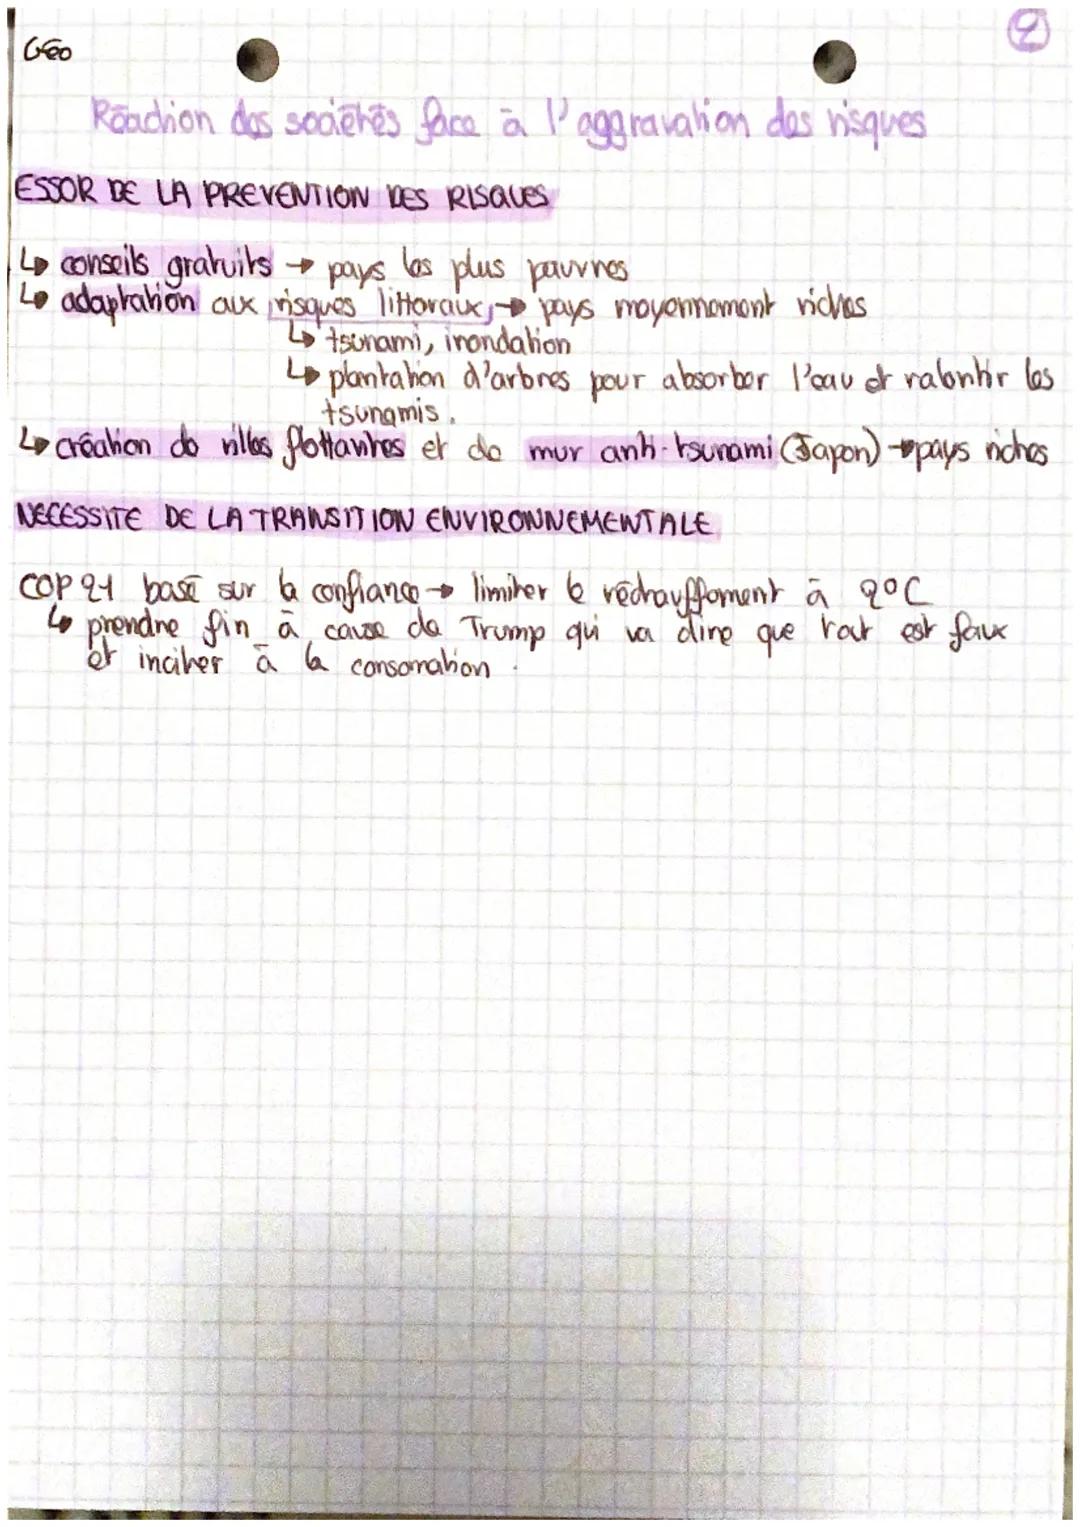 Géo
2
Réaction des sociétés face à l'aggravation des risques
ESSOR DE LA PREVENTION DES RISQUES
↳ conseils gratuits → pays les plus pauvres
↳ adaptation aux risques littoraux, → pays moyennement riches
↳ tsunami, inondation
↳ plantation d'arbres pour absorber l'eau et ralentir les
tsunamis.
↳ création de villes flottantes et de mur anti-tsunami (Japon) → pays riches
NECESSITE DE LA TRANSITION ENVIRONNEMENTALE
COP 21 basé sur la confiance → limiter le réchauffement à 2°C
↳ prendre fin à cause de Trump qui va dire que tout est faux
et inciter à la consomation.